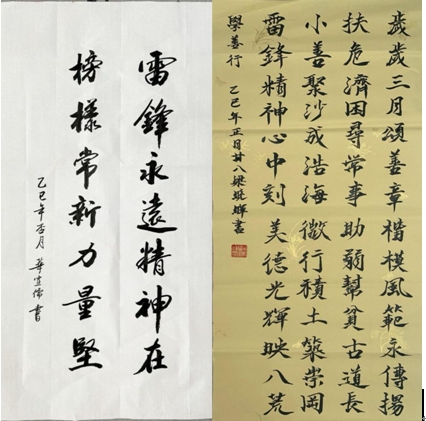 雷鋒永遠精神在
榜樣常新力量堅
乙巳年杏月 華宣儒書
歲歲三月頌善章楷模風範永傳揚
扶危濟困尋常事助弱幫貧古道長
小善聚沙成浩海微行積土築崇岡
雷鋒精神心中刻美德光輝映八荒
學善行 乙巳年正月廿八梁輝書